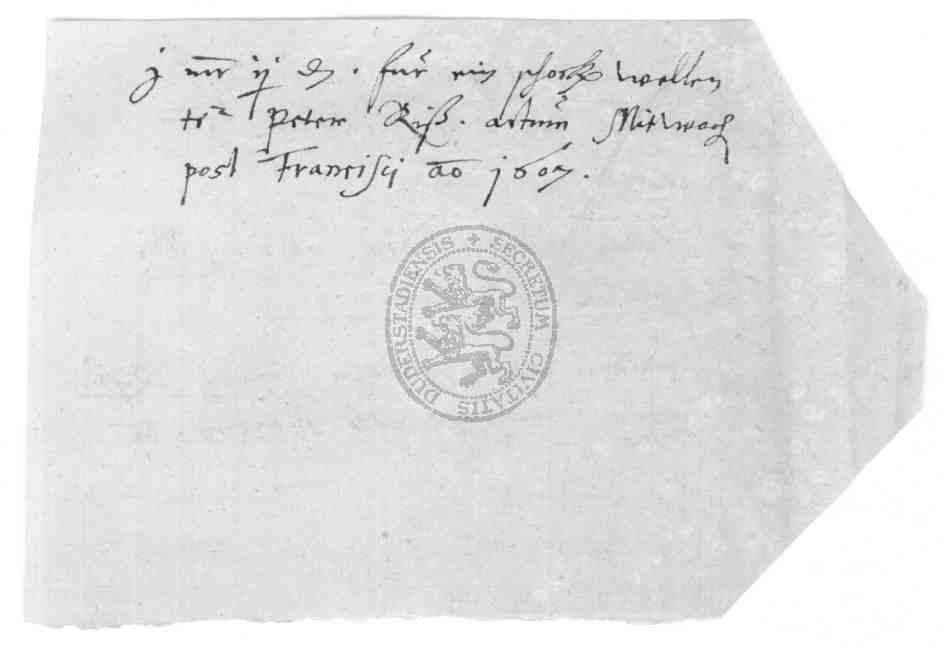 j mr ij d. für ein schock wellen
tt Peter Riß. actum Mitwoch
post Francisci ao 1607.
SECRETUM CIVITATIS DUDERSTADIENSIS +